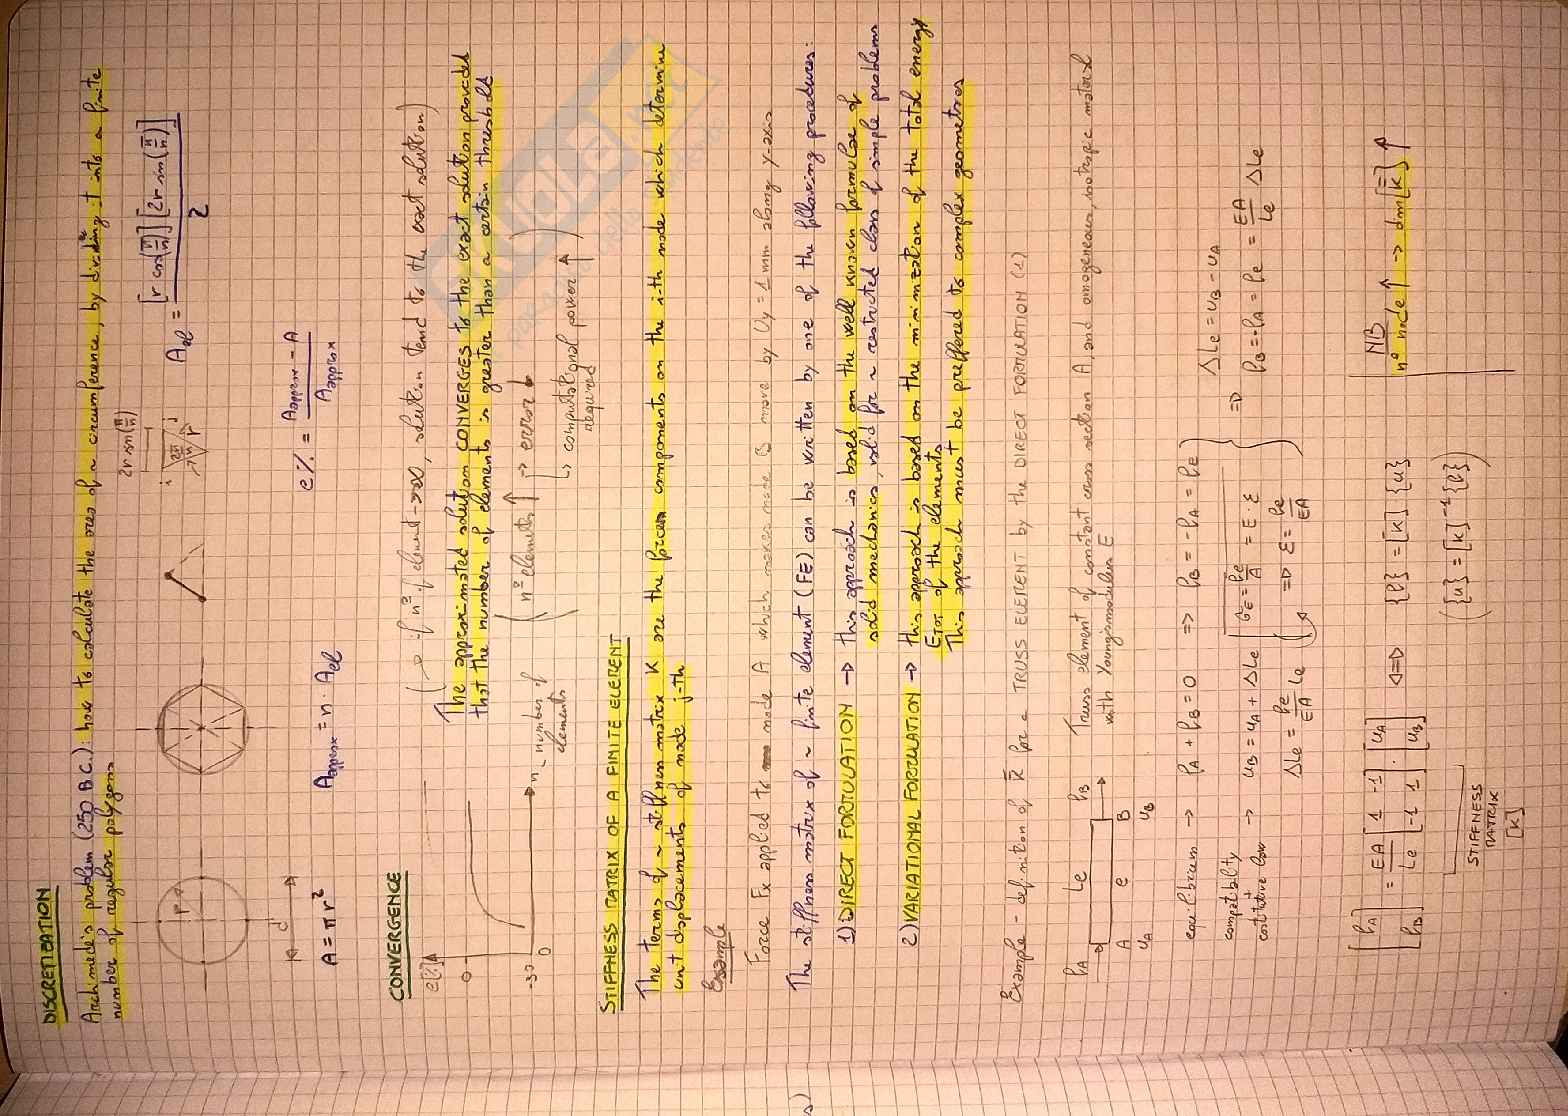 DISCRETIZATION
Archimede's problem (250 B.C.): how to calculate the area of a circumference, by dividing it into a finite
number of regular polygons
r
d
A = πr²
A_approx = n · A_el
i
j
r
2π/n
2r sin(π/n)
A_el = [r cos(π/n)] [2r sin(π/n)] / 2
e% = (A_approx - A) / A_approx
CONVERGENCE
e[%]
0
0
n → number of
elements
( → if n° of element → ∞, solution tend to the exact solution)
The approximated solution CONVERGES to the exact solution provided
that the number of elements is greater than a certain threshold
(n° elements ↑ → error ↓
↳ computational power ↑)
required
STIFFNESS MATRIX OF A FINITE ELEMENT
The terms of a stiffness matrix K are the forces components on the i-th node which determine
unit displacements of node j-th
Example
Force Fx applied to node A which makes node B move by Uy = 1 mm along y-axis
The stiffness matrix of a finite element (FE) can be written by one of the following procedures:
1) DIRECT FORMULATION → this approach is based on the well known formulae of
solid mechanics, valid for a restricted class of simple problems
2) VARIATIONAL FORMULATION → this approach is based on the minimization of the total energy
E_TOT of the elements
This approach must be preffered to complex geometries
Example - definition of K for a TRUSS ELEMENT by the DIRECT FORMULATION (1)
f_A Le f_B
A e B
u_A u_B
Truss element of constant cross section A, and omogeneous, isotropic material
with Young modulus E
equilibrium → f_A + f_B = 0 => f_B = -f_A = f_e
compatibility → u_B = u_A + ΔLe
costitutive law
σ_E = f_e/A = E · ε
ΔLe = f_e/EA Le => ε = f_e/EA
=> ΔLe = u_B - u_A
f_B = -f_A = f_e = EA/Le ΔLe
[f_A f_B] = EA/Le [1 -1 -1 1] · [u_A u_B] <=> {f} = [K] {u}
({u} = [K]⁻¹ {f})
STIFFNESS
MATRIX
[K]
NB
n° node ↑ → dim [K] ↑